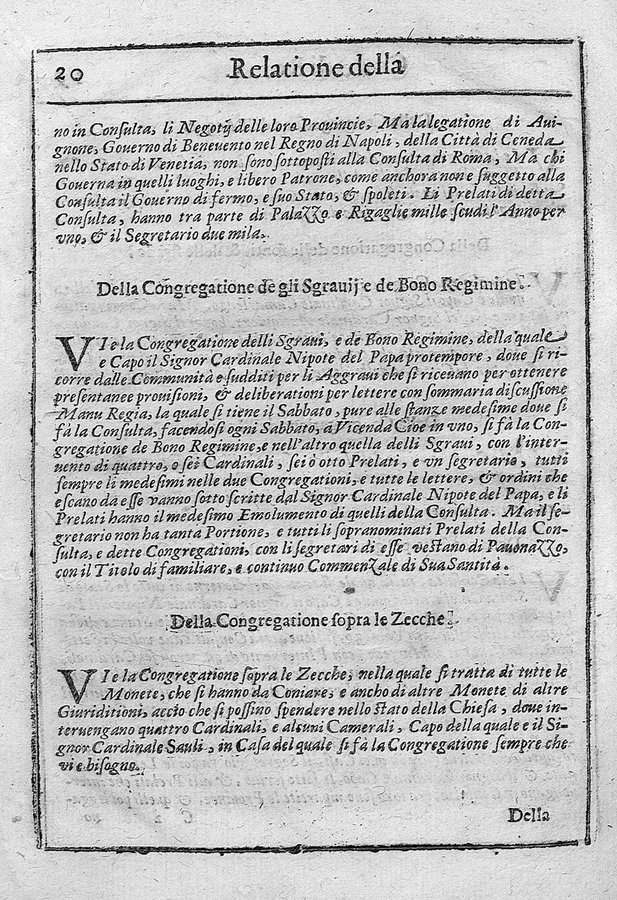 20
Relatione della
no in Consulta, li Negotij delle loro Prouincie, Ma la legatione di Aui-
gnone, Gouerno di Beneuento nel Regno di Napoli, della Città di Ceneda
nello Stato di Venetia, non sono sottoposti alla Consulta di Roma, Ma chi
Gouerna in quelli luoghi, e libero Patrone, come anchora non e suggetto alla
Consulta il Gouerno di fermo, e suo Stato, & spoleti. Li Prelati di detta
Consulta, hanno tra parte di Palazzo e Rigaglie mille scudi l'Anno per
vno, & il Segretario due mila.
Della Congregatione de gli Sgrauij e de Bono Regimine.
VI e la Congregatione delli Sgraui, e de Bono Regimine, della quale
e Capo il Signor Cardinale Nipote del Papa protempore, doue si ri-
corre dalle Communità e sudditi per li Aggraui che si riceuano per ottenere
presentanee prouisioni, & deliberationi per lettere con sommaria discussione
Manu Regia, la quale si tiene il Sabbato, pure alle stanze medesime doue si
fà la Consulta, facendosi ogni Sabbato, à Vicenda Cioe in vno, si fà la Con-
gregatione de Bono Regimine, e nell'altro quella delli Sgraui, con l'inter-
uento di quattro, o sei Cardinali, sei ò otto Prelati, e vn segretario, tutti
sempre li medesimi nelle due Congregationi, e tutte le lettere, & ordini che
escano da esse vanno sotto scritte dal Signor Cardinale Nipote del Papa, e li
Prelati hanno il medesimo Emolumento di quelli della Consulta. Ma il se-
gretario non ha tanta Portione, e tutti li sopranominati Prelati della Con-
sulta, e dette Congregationi, con li segretari di esse vestano di Pauonazzo,
con il Titolo di familiare, e continuo Commenzale di Sua Santità.
Della Congregatione sopra le Zecche.
VI e la Congregatione sopra le Zecche, nella quale si tratta di tutte le
Monete, che si hanno da Coniare, e ancho di altre Monete di altre
Giuriditioni, accio che si possino spendere nello stato della Chiesa, doue in-
teruengano quattro Cardinali, e alcuni Camerali, Capo della quale e il Si-
gnor Cardinale Sauli, in Casa del quale si fà la Congregatione sempre che
vi e bisogno.
Della